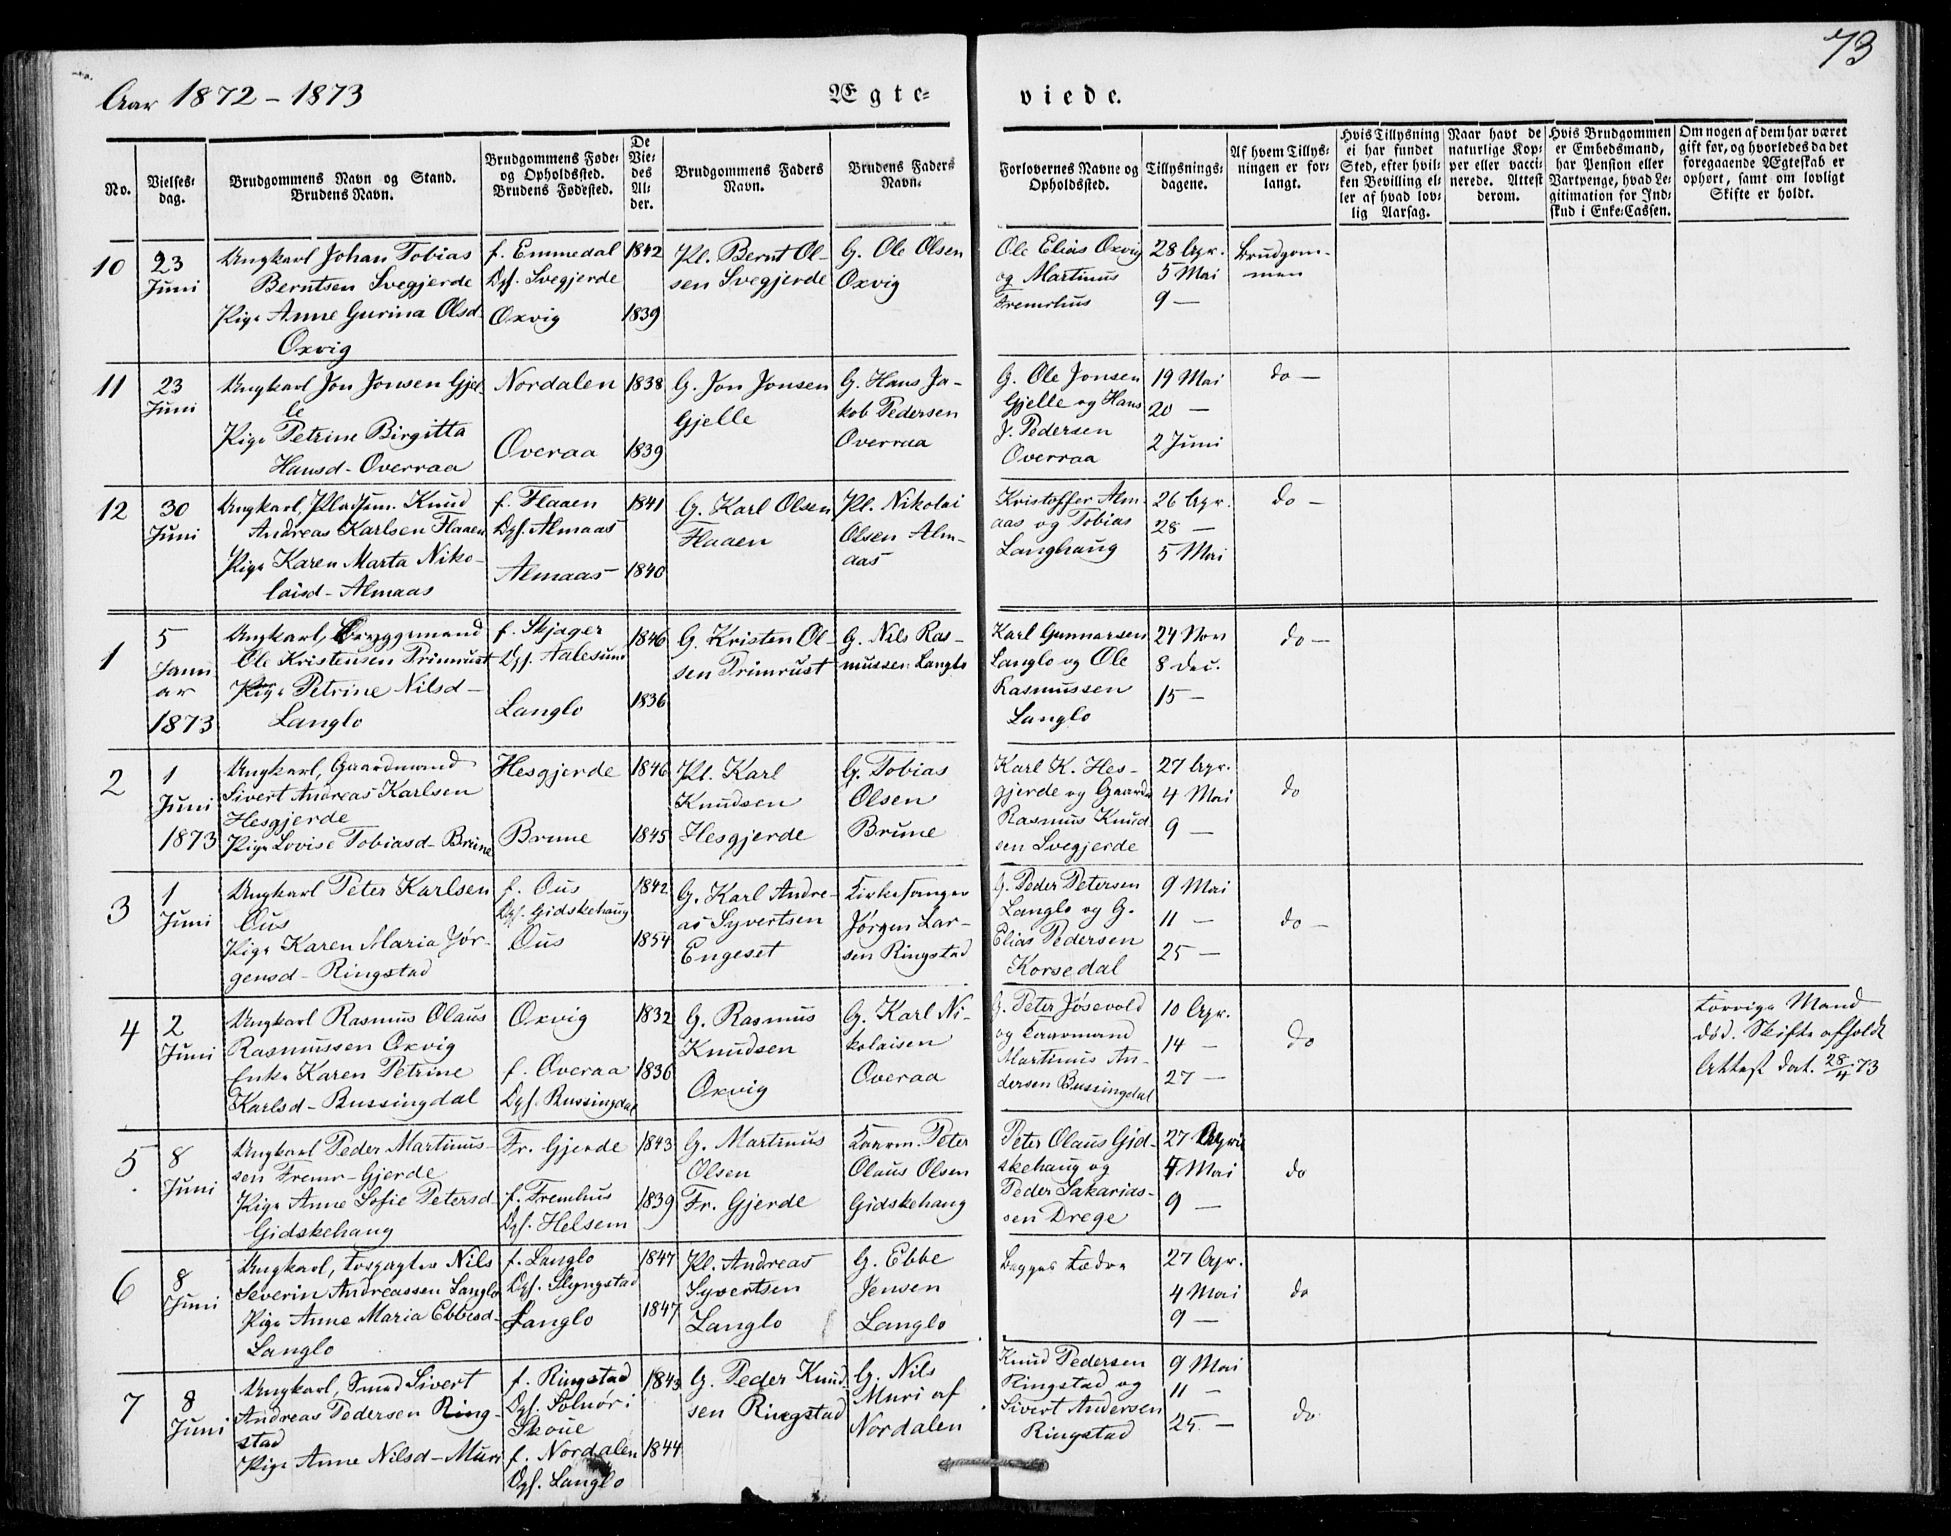 73
Aar 1872 - 1873
Ægte-
viede.
No.
Vielses-
dag.
Brudgommens Navn og Stand.
Brudens Navn.
Brudgommens Føde-
og Opholdssted.
Brudens Fødested.
De
Vie-
des
Al-
der.
Brudgommens Faders
Navn.
Brudens Faders
Navn.
Forlovernes Navne og
Opholdssted.
Tillysnings-
dagene.
Af hvem Tillys-
ningen er for-
langt.
Hvis Tillysning
ei har fundet
Sted, efter hvil-
ken Bevilling el-
ler af hvad lov-
lig Aarsag.
Naar havt de
naturlige Kop-
per eller vacci-
nerede. Attest
derom.
Hvis Brudgommen
er Embedsmand,
har Pension eller
Vartpenge, hvad Le-
gitimation for Ind-
skud i Enke-Cassen.
Om nogen af dem har været
gift før, og hvorledes da det
foregaaende Ægteskab er
ophørt, samt om lovligt
Skifte er holdt.
10
23
Juni
Ungkarl Johan Tobias
Berntsen Svegjerde
Pige Anne Gurina Olsd-
Oxvig
f. Emmedal
Opf. Svegjerde
Oxvig
1842
1839
Pl. Bernt Ol-
sen Svegjerde
G. Ole Olsen
Oxvig
Ole Elias Oxvig
og Martinus
Fremrhus
28 Apr.
5 Mai
9 —
Brudgom-
men
11
23
Juni
Ungkarl Jon Jonsen Gjel-
le
Pige Petrine Birgitta
Hansd- Overraa
Nordalen
Overaa
1838
1839
G. Jon Jonsen
Gjelle
G. Hans Ja-
kob Pedersen
Overraa
G. Ole Jonsen
Gjelle og Hans
J. Pedersen
Overraa
19 Mai
20 —
2 Juni
do —
12
30
Juni
Ungkarl, Pladsm. Knud
Andreas Karlsen Flaaen
Pige Karen Marta Niko-
laisd- Almaas
f. Flaaen
Opf. Almaas
Almaas
1841
1840
G. Karl Olsen
Flaaen
Pl. Nikolai
Olsen Alm-
aas
Kristoffer Alm-
aas og Tobias
Langhaug
26 Apr.
28 —
5 Mai
do —
1
5
Janu
ar
1873
Ungkarl, Bryggemand
Ole Kristensen Trimrust
Pige Petrine Nilsd-
Langlo
f. Skjager
Opf. Aalesund
Langlo
1846
1836
G. Kristen Ol-
sen Trimrust
G. Nils Ras-
mussen Langlo
Karl Gunnarsen
Langlo og Ole
Rasmussen
Langlo
24 Nov
8 Dec.
15 —
do —
2
1
Juni
1873
Ungkarl, Gaardmand
Sivert Andreas Karlsen
Hesgjerde
Pige Lovise Tobiasd- Brune
Hesgjerde
Brune
1846
1845
Pl. Karl
Knudsen
Hesgjerde
G. Tobias
Olsen
Brune
Karl K. Hes-
gjerde og Gaardm
Rasmus Knud
sen Svegjerde
27 Apr.
4 Mai
9 —
do
3
1
Juni
Ungkarl Peter Karlsen
Ous
Pige Karen Maria Jør-
gensd- Ringstad
f. Ous
Opf. Gidskehaug
Ous
1842
1854
G. Karl Andre-
as Syvertsen
Engeset
Kirkesanger
Jørgen Lar-
sen Ringstad
G. Peder Petersen
Langlo og G.
Elias Pedersen
Korsedal
9 Mai
11 —
25 —
do —
4
2
Juni
Ungkarl Rasmus Olaus
Rasmussen Oxvig
Enke Karen Petrine
Karlsd- Bussingdal
Oxvig
f. Overaa
Opf. Bussingdal
1832
1836
G. Rasmus
Knudsen
Oxvig
G. Karl Ni-
kolaisen
Overaa
G. Peter Jøsevold
og Kaarmand
Martinus An-
dersen Bussingdal
10 Apr.
14 —
27 —
do
Forrige Mand
død. Skifte afholdt
Attest dat. 28/4 73
5
8
Juni
Ungkarl Peder Martinus-
sen Fremr- Gjerde
Pige Anne Sofie Petersd-
Gidskehaug
Fr. Gjerde
f. Fremhus
Opf. Helsem
1843
1839
G. Martinus
Olsen
Fr. Gjerde
Kaarm. Peter
Olaus Olsen
Gidskehaug
Peter Olaus Gid-
skehaug og
Peder Sakarias-
sen Drege
27 April
4 Mai
9 —
do
6
8
Juni
Ungkarl, Forpagter Nils
Severin Andreassen Langlo
Pige Anne Maria Ebbesd-
Langlo
f. Langlo
Opf. Slyngstad
Langlo
1847
1847
Pl. Andreas
Syvertsen
Langlo
G. Ebbe
Jensen
Langlo
Begges Fædre
27 Apr.
4 Mai
9 —
do
7
8
Juni
Ungkarl, Smed Sivert
Andreas Pedersen Ring-
stad
Pige Anne Nilsd- Muri
f. Ringstad
Opf. Solnør i
Skoue
f. Nordalen
Opf. Langlo
1843
1844
G. Peder Knud-
sen Ringstad
G. Nils
Muri af
Nordalen
Knud Pedersen
Ringstad og
Sivert Andersen
Ringstad
9 Mai
11 —
25 —
do